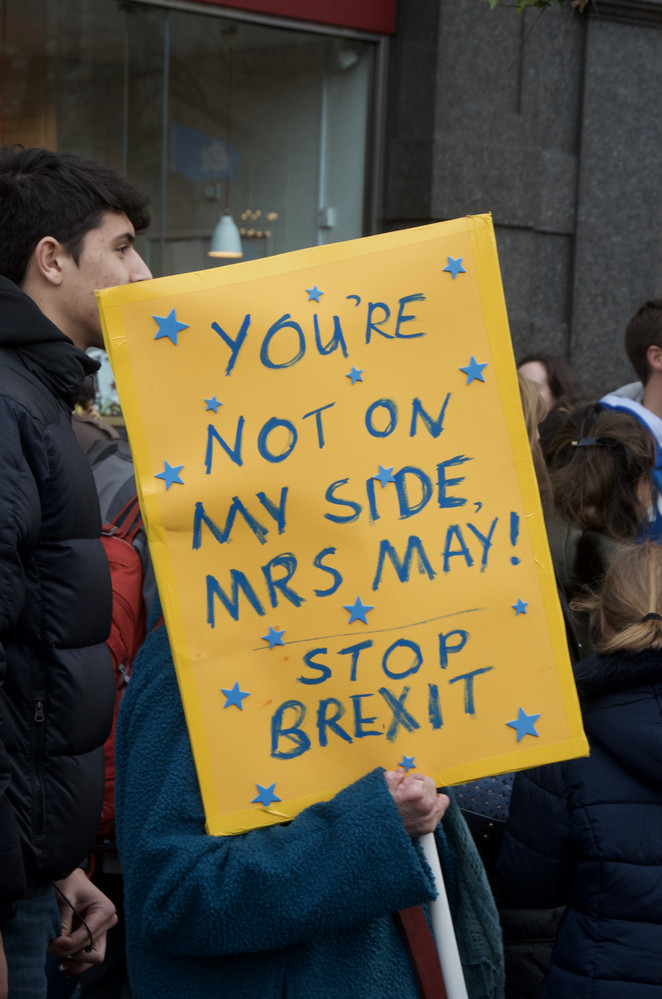 YOU'RE
NOT ON
MY SIDE,
MRS MAY!
STOP
BREXIT